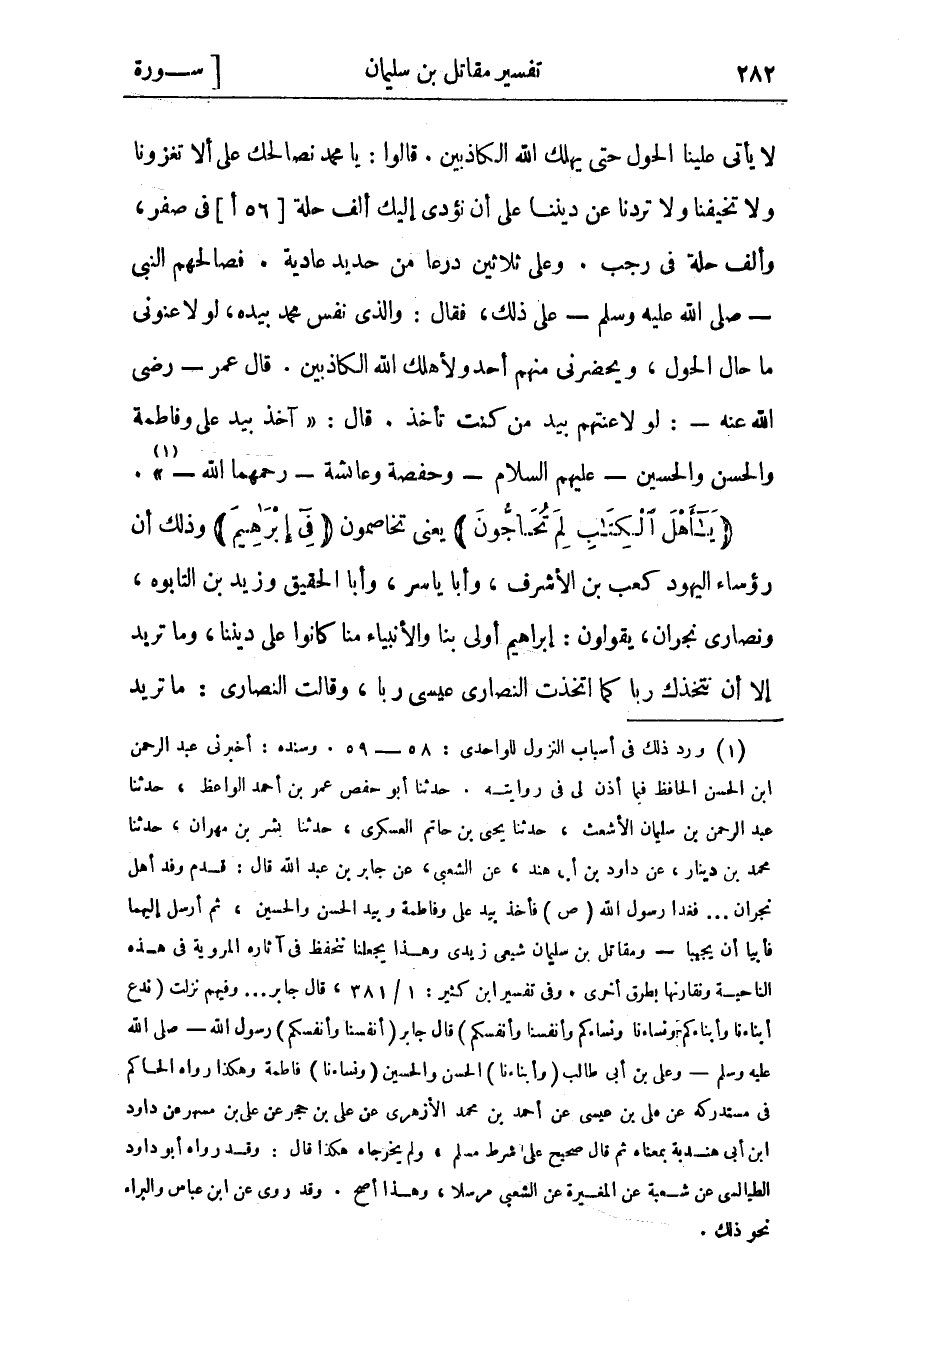 ٢٨٢ تفسير مقاتل بن سليمان [ ســـورة
لا يأتى علينا الحول حتى يهلك الله الكاذبين . قالوا : يا محمد نصالحك على ألا تغزونا
ولا تخيفنا ولا تردنا عن ديننـا على أن نؤدى إليك ألف حلة [ ٥٦ أ ] فى صفر ،
وألف حلة فى رجب . وعلى ثلاثين درعا من حديد عادية . فصالحهم النبى
— صلى الله عليه وسلم — على ذلك ، فقال : والذى نفس محمد بيده ، لو لاعنونى
ما حال الحول ، ويحضرنى منهم أحد ولأهلك الله الكاذبين . قال عمر — رضى
الله عنه — : لو لاعنتهم بيد من كنت تأخذ . قال : « آخذ بيد على وفاطمة
والحسن والحسين — عليهم السلام — وحفصة وعائشة — رحمهما الله — » (١) .
﴿ يَـٰٓأَهْلَ ٱلْكِتَـٰبِ لِمَ تُحَـآجُّونَ ﴾ يعنى تخاصمون ﴿ فِىٓ إِبْرَٰهِيمَ ﴾ وذلك أن
رؤساء اليهود كعب بن الأشرف ، وأبا ياسر ، وأبا الحقيق وزيد بن التابوه ،
ونصارى نجران ، يقولون : إبراهيم أولى بنا والأنبياء منا كانوا على ديننا ، وما تريد
إلا أن نتخذك ربا كما اتخذت النصارى عيسى ربا ، وقالت النصارى : ما تريد
(١) ورد ذلك فى أسباب النزول للواحدى : ٥٨ — ٥٩ . وسنده : أخبرنى عبد الرحمن
ابن الحسن الحافظ فيما أذن لى فى روايتـه . حدثنا أبو حفص عمر بن أحمد الواعظ ، حدثنا
عبد الرحمن بن سليمان الأشعث ، حدثنا يحيى بن حاتم العسكرى ، حدثنا بشر بن مهران ، حدثنا
محمد بن دينار ، عن داود بن أبى هند ، عن الشعبى ، عن جابر بن عبد الله قال : قـدم وفد أهل
نجران ... فغدا رسول الله ( ص ) فأخذ بيد على وفاطمة وبيد الحسن والحسين ، ثم أرسل إليهما
فأبيا أن يجيبا — ومقاتل بن سليمان شيعى زيدى وهـذا يجعلنا نتحفظ فى آثاره المروية فى هـذه
الناحيـة ونقارنها بطرق أخرى . وفى تفسير ابن كثير : ١ / ٣٨١ ، قال جابر ... وفيهم نزلت ( ندع
أبناءنا وأبناءكم ونساءنا ونساءكم وأنفسنا وأنفسكم ) قال جابر ( أنفسنا وأنفسكم ) رسول الله — صلى الله
عليه وسلم — وعلى بن أبى طالب ( وأبناءنا ) الحسن والحسين ( ونساءنا ) فاطمة وهكذا رواه الحاكم
فى مستدركه عن على بن عيسى عن أحمد بن محمد الأزهرى عن على بن حجر عن على بن مسهر عن داود
ابن أبى هنـد به بمعناه ثم قال صحيح على شرط مسلم ، ولم يخرجاه هكذا قال : وقـد رواه أبو داود
الطيالسى عن شـعبة عن المغيـرة عن الشعبى مرسلا ، وهـذا أصح . وقد روى عن ابن عباس والبراء
نحو ذلك .